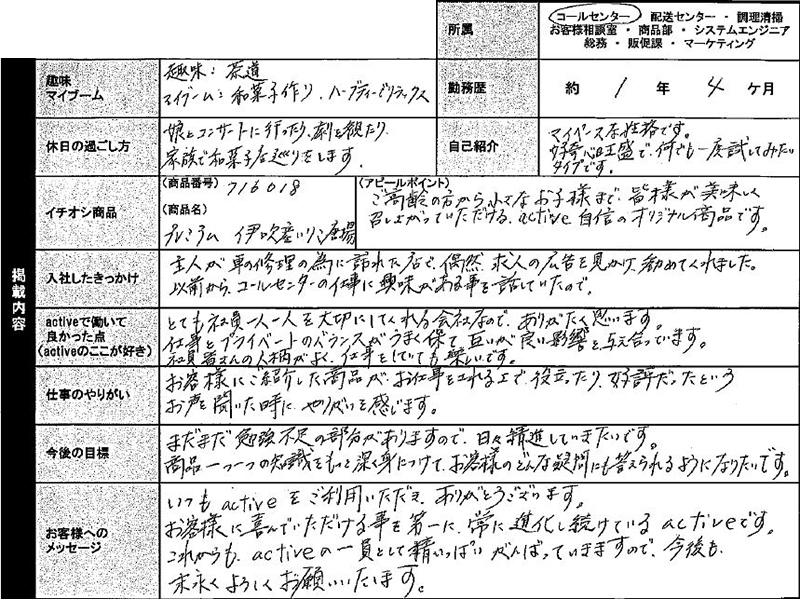 所属
コールセンター ・ 配送センター ・ 調理清掃
お客様相談室 ・ 商品部 ・ システムエンジニア
総務 ・ 販促課 ・ マーケティング
掲載内容
趣味
マイブーム
趣味：茶道
マイブーム：和菓子作り、ハーブティーでリラックス
勤務歴
約 1 年 4 ケ月
休日の過ごし方
娘とコンサートに行ったり、劇を観たり、
家族で和菓子店巡りをします。
自己紹介
マイペースな性格です。
好奇心旺盛で、何でも一度試してみたい
タイプです。
イチオシ商品
(商品番号) 716018
(商品名)
プレミアム 伊吹産いりこ
(アピールポイント)
ご高齢の方から小さなお子様まで、皆様が美味しく
召し上がっていただける、active自信のオリジナル商品です。
入社したきっかけ
主人が車の修理の為に訪れた店で、偶然、求人の広告を見かけ、勧めてくれました。
以前から、コールセンターの仕事に興味がある事を話していたので。
activeで働いて
良かった点
(activeのここが好き)
とても社員一人一人を大切にしてくれる会社なので、ありがたく思います。
仕事とプライベートのバランスがうまく保て、互いが良い影響を与え合っています。
社員皆さんの人柄がよく、仕事をしていても楽しいです。
仕事のやりがい
お客様にご紹介した商品が、お仕事をされる上で、役立ったり、好評だったという
お声を聞いた時に、やりがいを感じます。
今後の目標
まだまだ勉強不足の部分がありますので、日々精進していきたいです。
商品一つ一つの知識をもっと深く身につけて、お客様のどんな疑問にも答えられるようになりたいです。
お客様への
メッセージ
いつもactiveをご利用いただき、ありがとうございます。
お客様に喜んでいただける事を第一に、常に進化し続けているactiveです。
これからも、activeの一員として精いっぱいがんばっていきますので、今後も、
末永くよろしくお願いいたします。